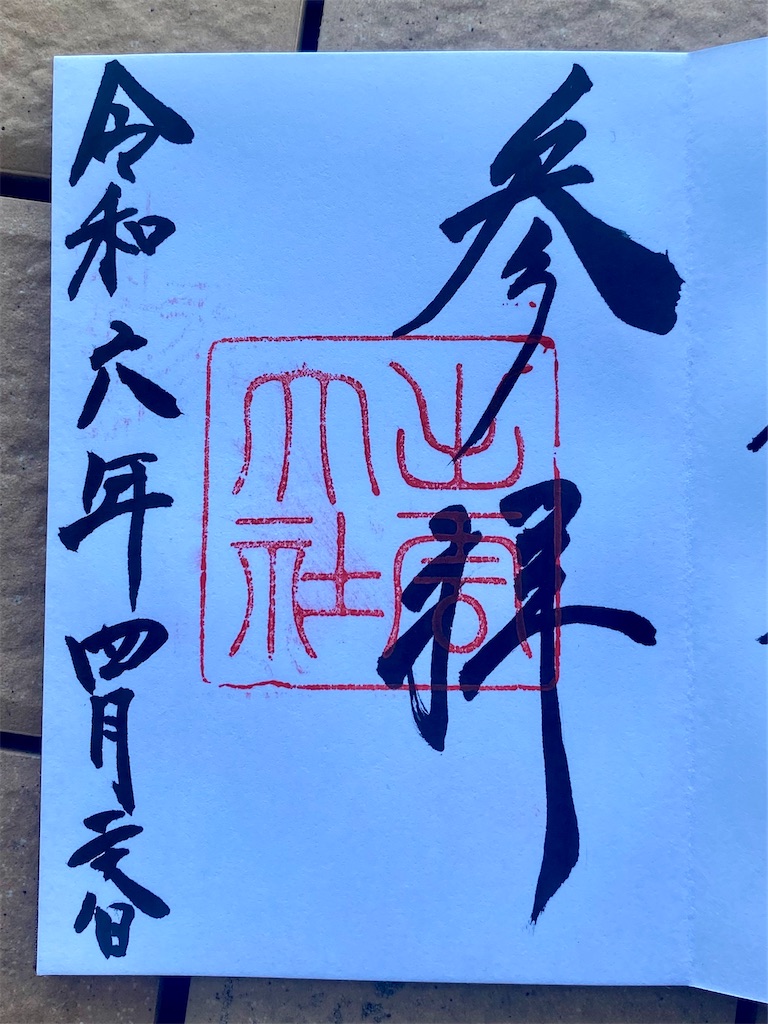 参拝
出雲
大社
令和六年四月日